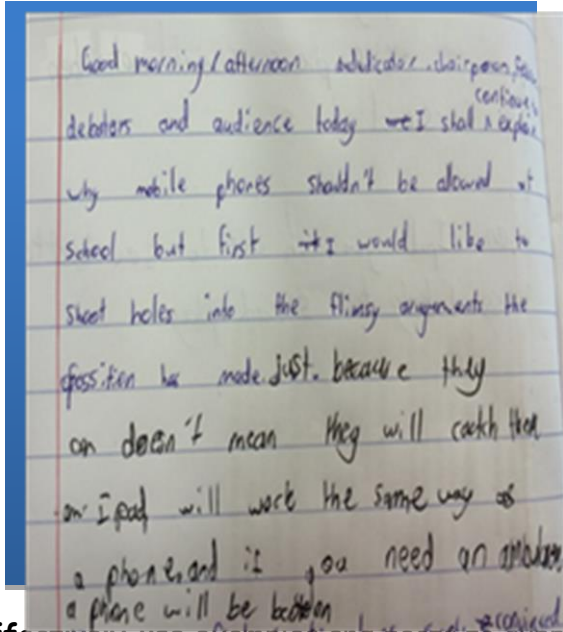 Good morning/afternoon adudicator, chairperson, fellow
continue
debaters and audience today I shall explain
why mobile phones shouldn't be allowed at
school but first I would like to
shoot holes into the flimsy arguments the
opossition has made. just. because they
can doesn't mean they will catch them
an Ipad will work the same way as
a phone, and if you need an ambulance
a phone will be